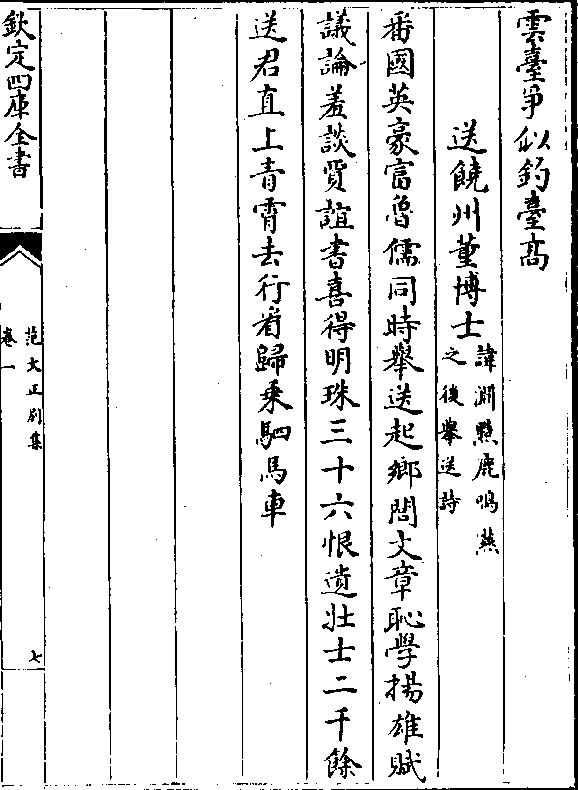 雲臺爭似釣臺高
送饒州董博士
諱淵縣鹿鳴燕
之後舉送詩
番國英豪富魯儒同時舉送起鄉閭文章恥學揚雄賦
議論羞談賈誼書喜得明珠三十六恨遺壯士二千餘
送君直上青霄去行看歸乘駟馬車
欽定四庫全書
范文正別集
卷一
七